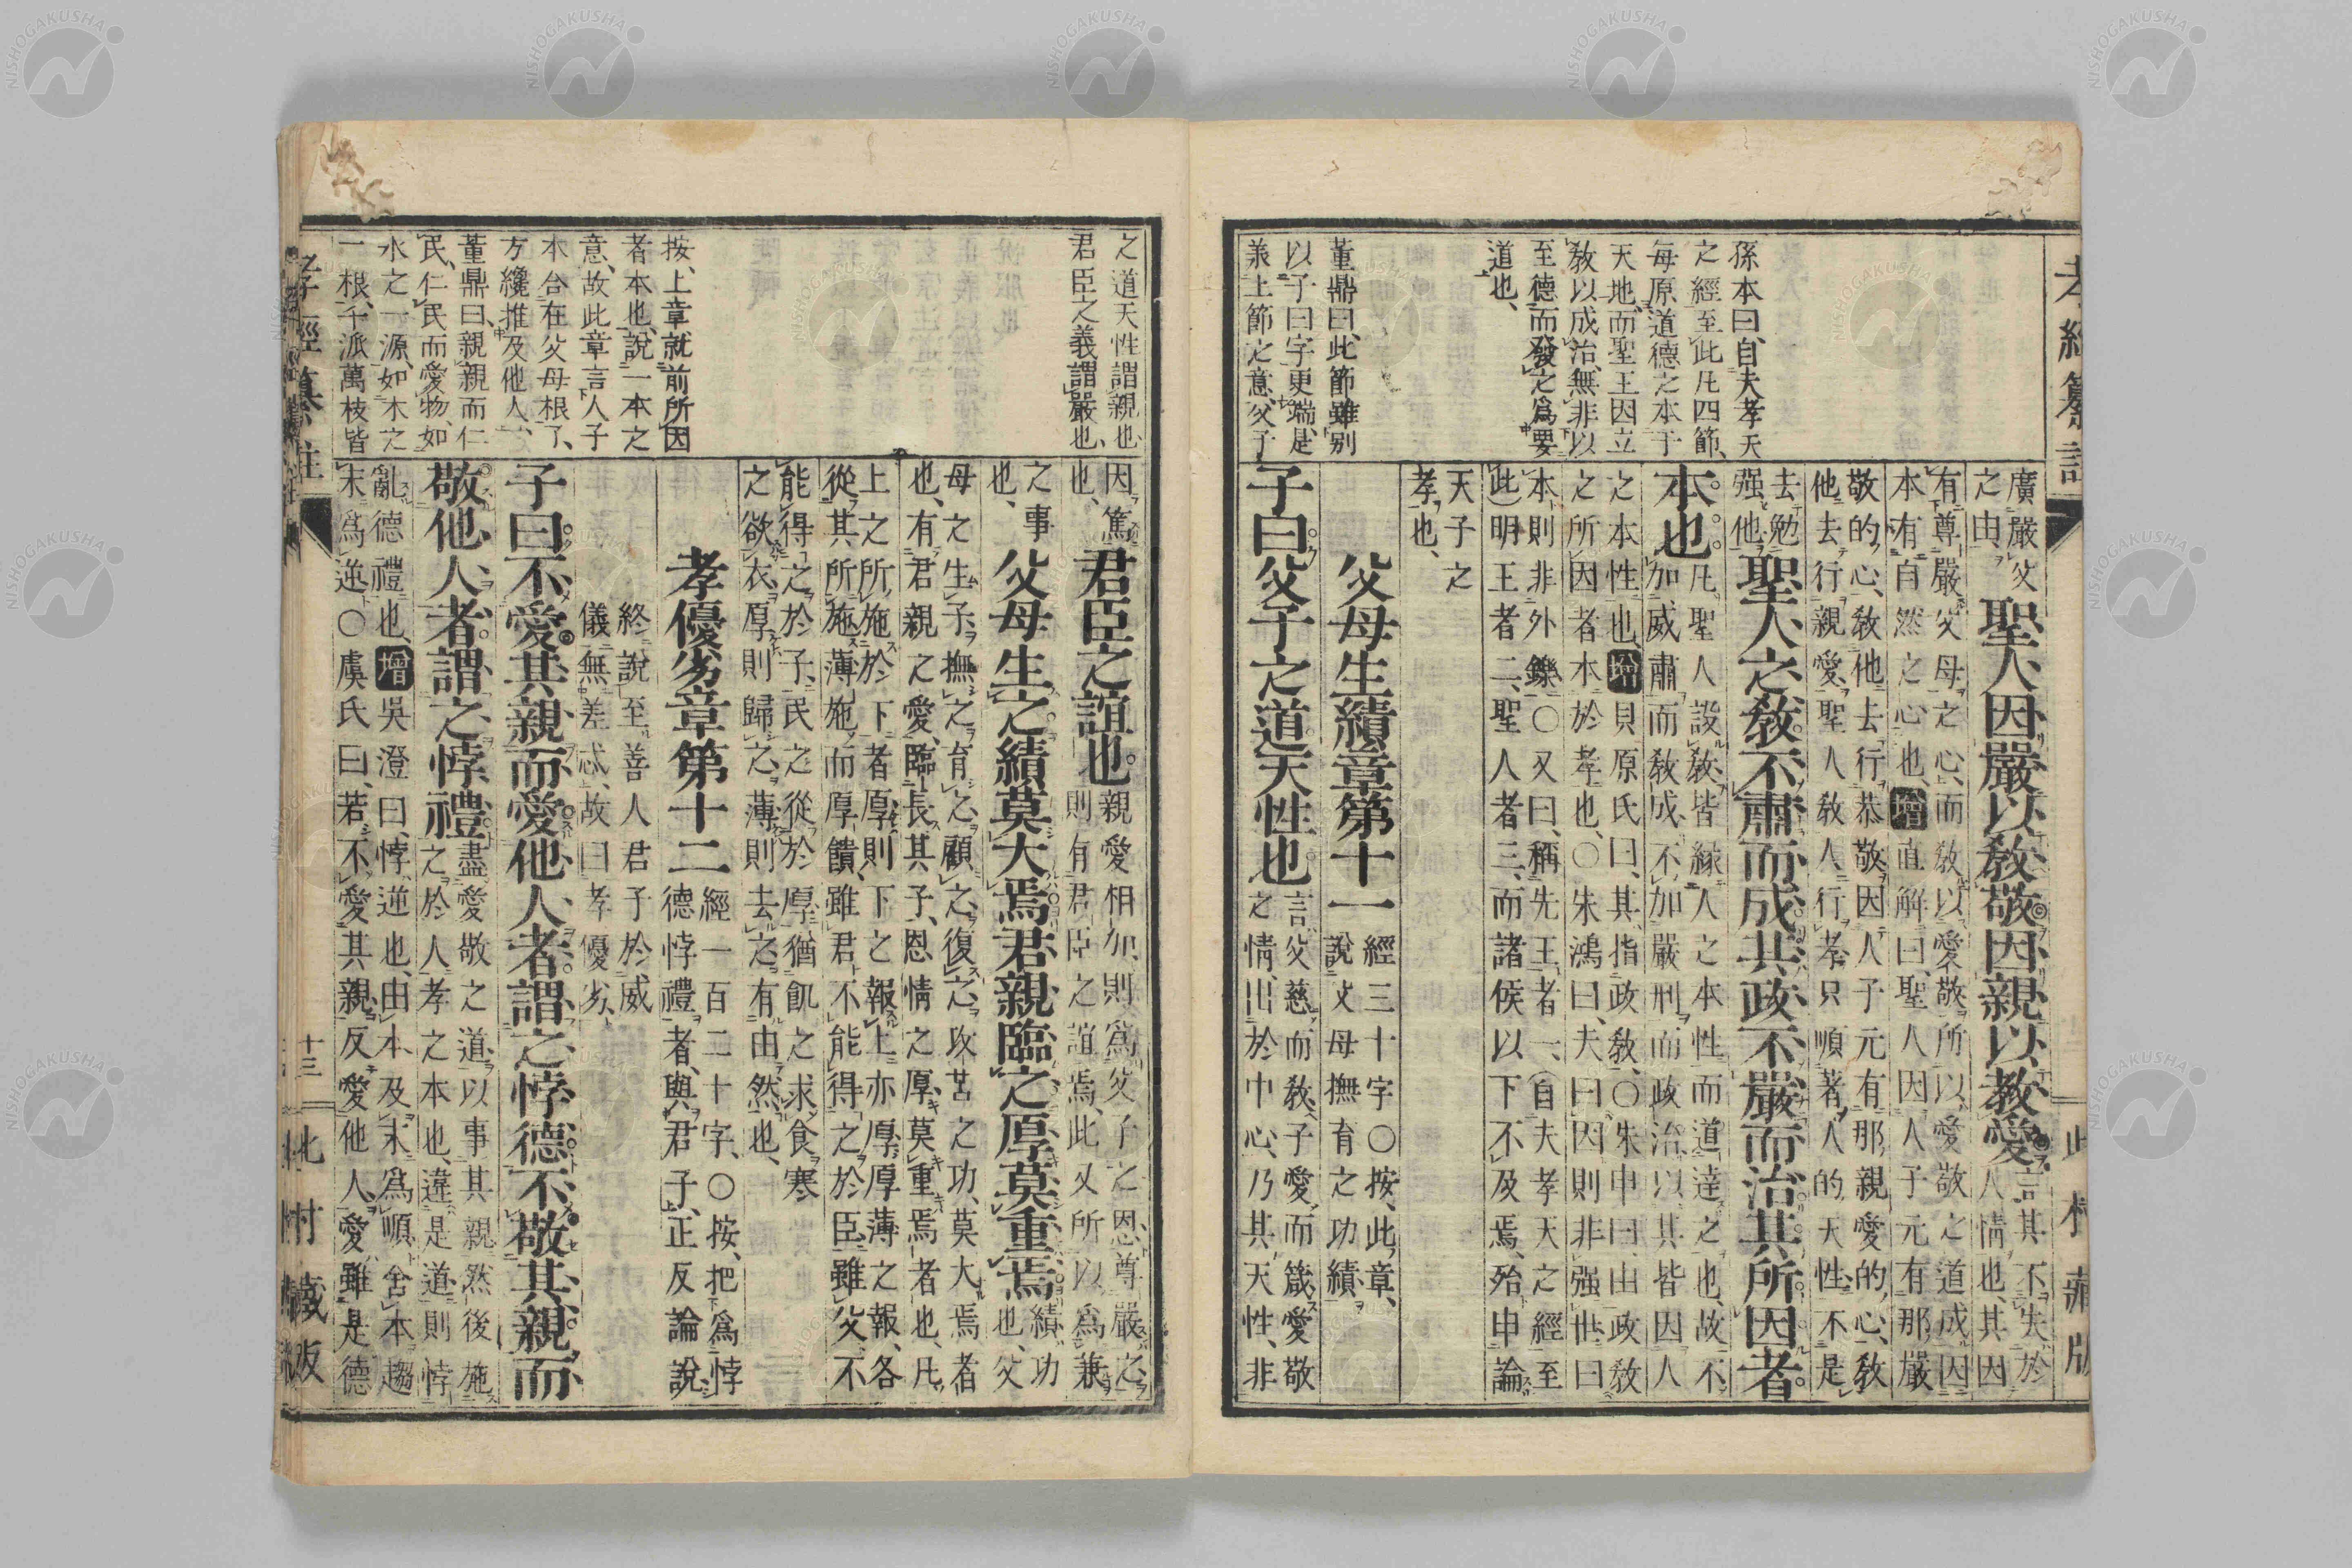 孫本曰、自夫孝天
之經至此凡四節、
毎原道德之本于
天地、而聖王因立
敎以成治、無非以
至德而發之爲要
道也、
董鼎曰、此節雖別
以子曰字更端、是
義上節之意、父子
廣嚴父
之由、
聖人因嚴以敎敬因親以敎愛
言其不失於
人情也、其因
有尊嚴父母之心、而敎以愛敬所以愛敬之道成因
本有自然之心也、增直解曰、聖人因人子元有那嚴
敬的心、敎他去行恭敬因人子元有那親愛的心、敎
他去行親愛、聖人敎人行孝只順著人的天性、不是
去勉
强他
聖人之敎不肅而成其政不嚴而治其所因者
本也
凡聖人設敎皆緣人之本性而道達之也、故不
加威肅而敎成、不加嚴刑而政治、以其皆因人
之本性也、增貝原氏曰、其指政敎、〇朱申曰、由政敎
之所因者本於孝也、〇朱鴻曰、夫曰因則非强世曰
本則非外鑠〇又曰、稱先王者一、自夫孝天之經至
此明王者二、聖人者三、而諸侯以下不及焉、殆申論
天子之
孝也、
父母生績章第十一
經三十字〇按、此章、
說父母撫育之功績
子曰父子之道天性也
言父慈而敎、子愛而箴、愛敬
之情、出於中心、乃其天性、非
孝經纂註
此村藏版
之道天性謂親也
君臣之義謂嚴也、
按、上章就前所因
者本也、說一本之
意、故此章言人子
本合在父母根了、
方纔推及他人、
董鼎曰、親親而仁
民、仁民而愛物、如
水之一源、如木之
一根、千派萬枝皆
因篤
也、
君臣之誼也
親愛相加、則爲父子之恩、尊嚴之、
則有君臣之誼焉、此又所以爲兼
之事
也、
父母生之績莫大焉君親臨之厚莫重焉
績、功
也、父
母之生子、撫之育之顧之、復之、攻苦之功、莫大焉者
也、有君親之愛、臨長其子、恩情之厚、莫重焉者也、凡
上之所施於下者厚、則下之報上亦厚、厚薄之報、各
從其所施、薄施而厚饋、雖君不能得之於臣、雖父不
能得之於子、民之從於厚、猶飢之求食、寒
之欲衣、厚則歸之、薄則去之、有由然也、
孝優劣章第十二
經一百二十字、〇按、把爲悖
德悖禮者、與君子、正反論說、
終說至善人君子於威
儀無差忒、故曰孝優劣、
子曰不愛其親而愛他人者謂之悖德不敬其親而
敬他人者謂之悖禮
盡愛敬之道、以事其親、然後施
之於人、孝之本也、違是道、則悖
亂德禮也、增吳澄曰、悖、逆也、由本及末爲順、舍本趨
末爲逆〇虞氏曰、若不愛其親反愛他人、愛雖是德
孝經纂註
十三
此村藏版